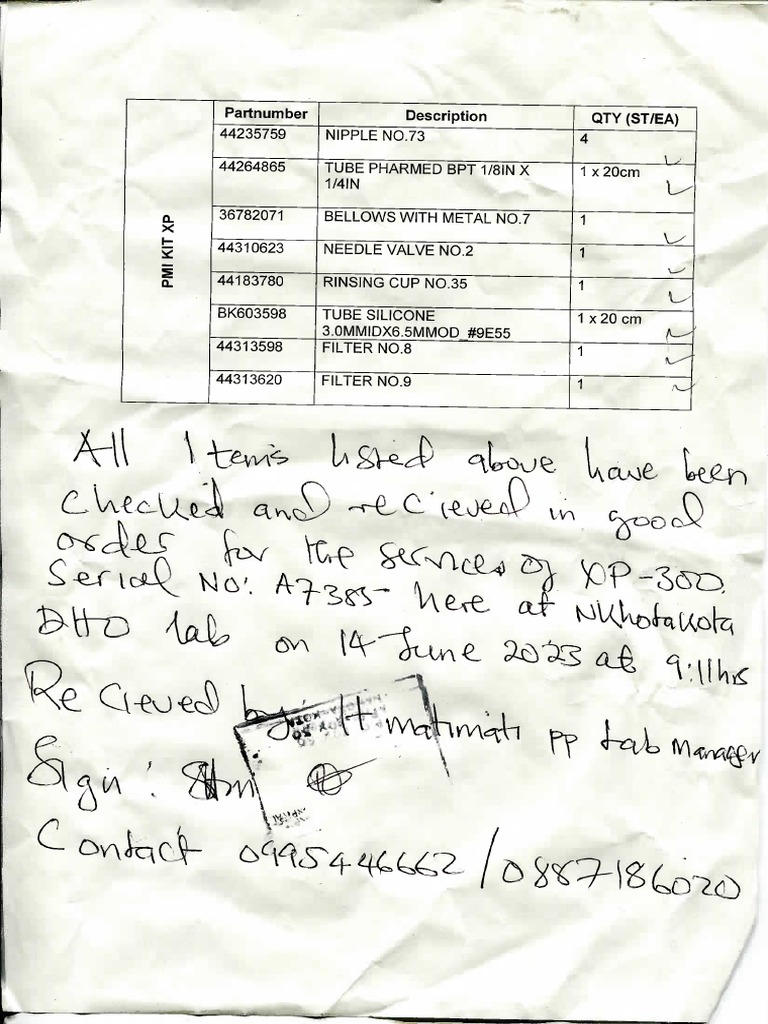 PMI KIT XP
Partnumber Description QTY (ST/EA)
44235759 NIPPLE NO.73 4
44264865 TUBE PHARMED BPT 1/8IN X 1/4IN 1 x 20cm
36782071 BELLOWS WITH METAL NO.7 1
44310623 NEEDLE VALVE NO.2 1
44183780 RINSING CUP NO.35 1
BK603598 TUBE SILICONE 3.0MMIDX6.5MMOD_#9E55 1 x 20 cm
44313598 FILTER NO.8 1
44313620 FILTER NO.9 1
All Items listed above have been
checked and recieved in good
order for the services of XP-300.
Serial NO: A7385 here at NKhotakota
DHO lab on 14 June 2023 at 9:11hrs
Recieved by: H matimati pp Lab Manager
Sign:
Contact 0995446662 / 0887186020